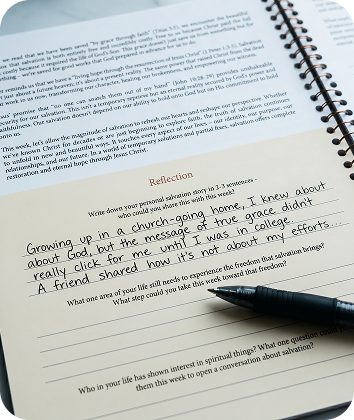 we read that we have been saved "by grace through faith"
salvation is both entirely free and incredibly costly. Free to us because it can't be
costly because it required the life of God's Son. This grace doesn't just save us from something but
- we're saved for good works that God prepared in advance for us to do.
reminds us that we have a "living hope through the resurrection of Jesus Christ" (1 Peter 1:3-5). Salvation
about a present reality. The same power that raised Christ from the dead
work in us now, transforming our character, healing our brokenness, and empowering our
promise that "no one can snatch them out of my hand" (John 10:28-29) provides unshakeable
security for our salvation. This isn't
secured by God's power and
faithfulness. Our salvation doesn't depend on our ability to hold onto God but on His commitment to hold
onto us.
This week, let's allow the magnitude of salvation to refresh our hearts and reshape our perspective. Whether
we've known Christ for decades or are just beginning to explore faith, the truth of salvation continues
to unfold in new and beautiful ways. It touches every aspect of our lives - our identity, our purpose, our
relationships, and our future. In a world of temporary solutions and partial fixes, salvation offers complete
restoration and eternal hope through Jesus Christ.
Reflection
Write down your personal salvation story in 2-3 sentences -
who could you share this with this week?
Growing up in a church-going home, I knew about
about God, but the message of true grace didn't
really click for me until I was in college.
A friend shared how it's not about my efforts...
What one area of your life still needs to experience the freedom that salvation brings?
What step could you take this week toward that freedom?
Who in your life has shown interest in spiritual things? What one question could
them this week to open a conversation about salvation?